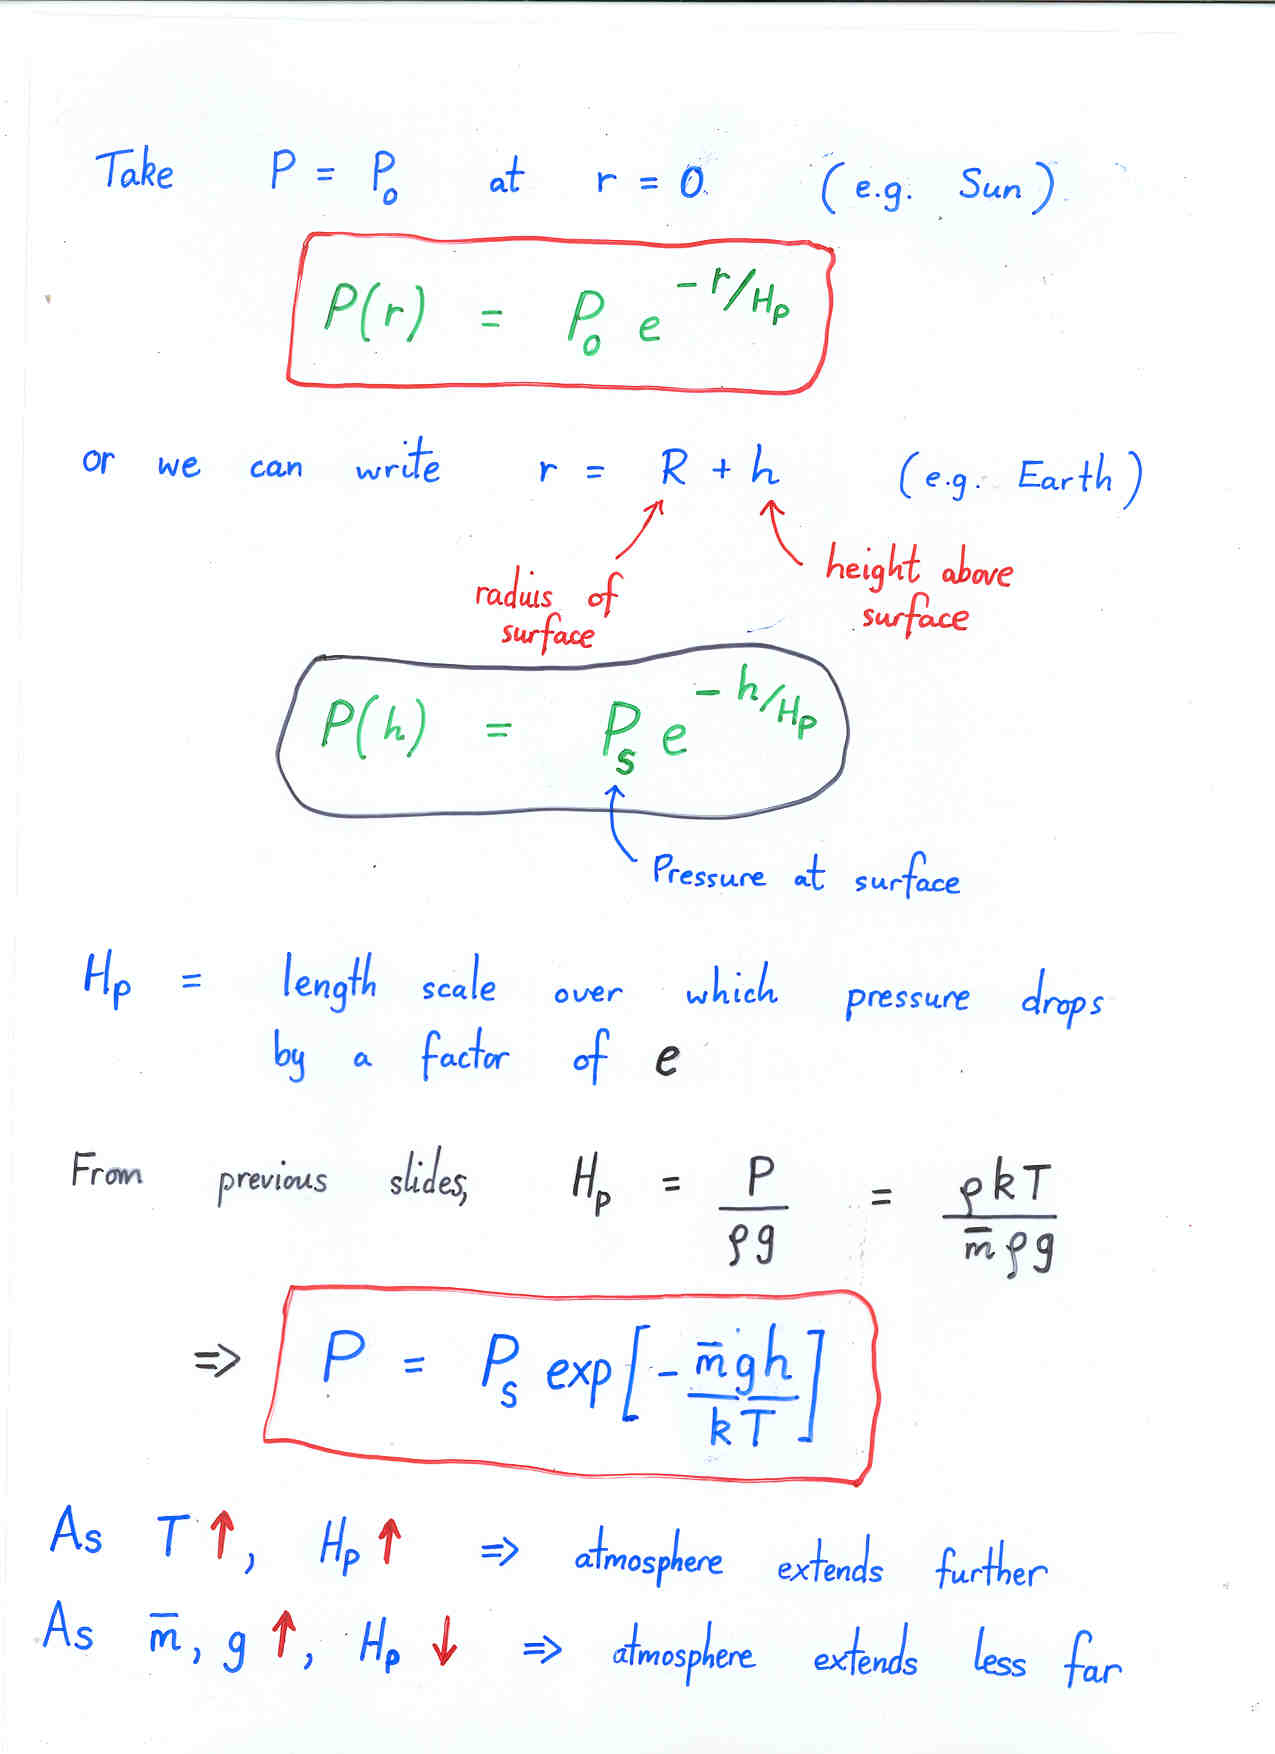 Take P = P₀ at r = 0 (e.g. Sun)
P(r) = P₀ e^(-r/H_p)
or we can write r = R + h (e.g. Earth)
raduis of
surface
height above
surface
P(h) = P_s e^(-h/H_p)
Pressure at surface
H_p = length scale over which pressure drops
by a factor of e
From previous slides, H_p = P/ρg = ρkT/m̄ρg
⇒ P = P_s exp[-m̄gh/kT]
As T ↑, H_p ↑ ⇒ atmosphere extends further
As m̄, g ↑, H_p ↓ ⇒ atmosphere extends less far